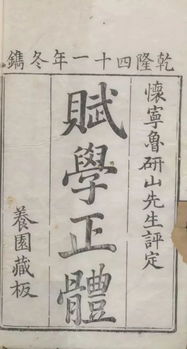 乾隆四十一年冬鐫
懷寧魯研山先生評定
賦學正體
養園藏板